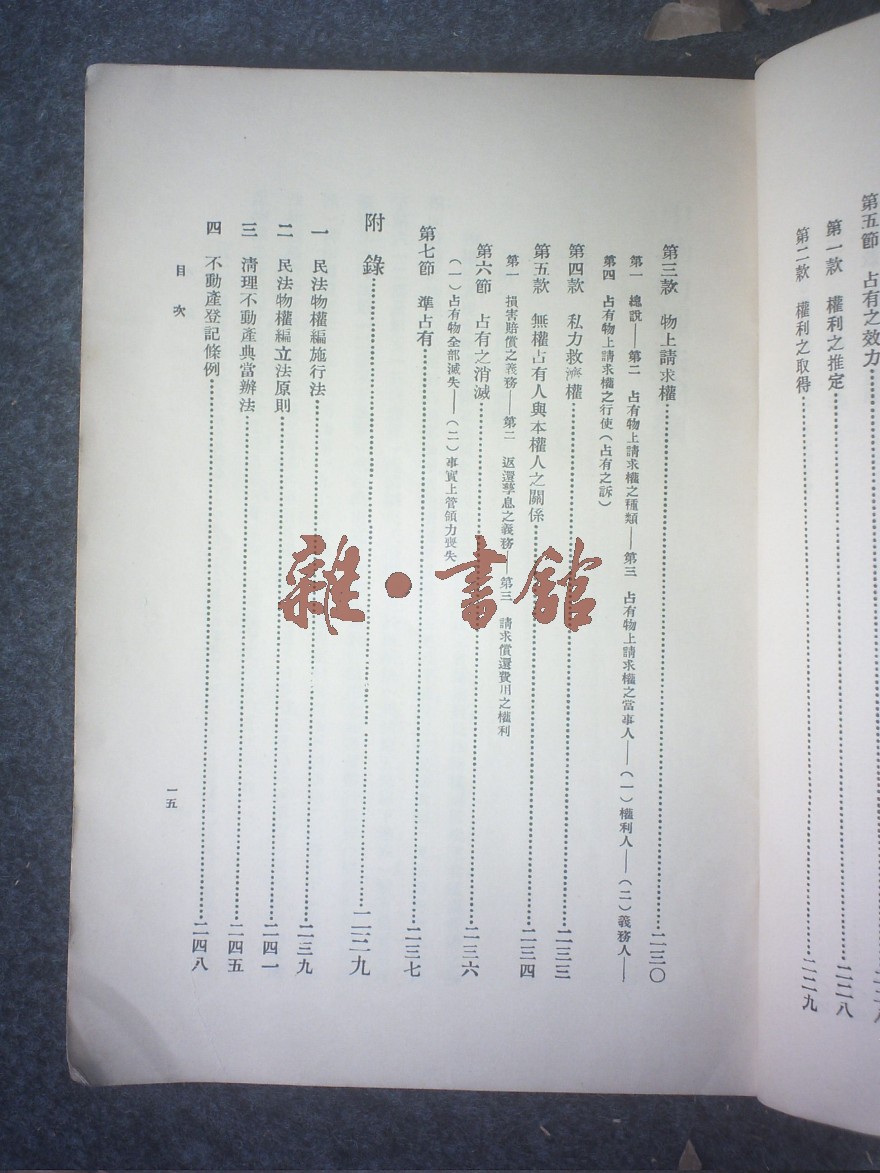 第五節 占有之效力……二二八
第一款 權利之推定……二二八
第二款 權利之取得……二二九
第三款 物上請求權……二三〇
第一 總說——第二 占有物上請求權之種類——第三 占有物上請求權之當事人——(一)權利人——(二)義務人——
第四 占有物上請求權之行使(占有之訴)
第四款 私力救濟權……二三三
第五款 無權占有人與本權人之關係……二三四
第一 損害賠償之義務——第二 返還孳息之義務——第三 請求償還費用之權利
第六節 占有之消滅……二三六
(一)占有物全部滅失——(二)事實上管領力喪失
第七節 準占有……二三七
附錄……二二九
一 民法物權編施行法……二三九
二 民法物權編立法原則……二四一
三 清理不動產典當辦法……二四五
四 不動產登記條例……二四八
目次
一五
雜·書館